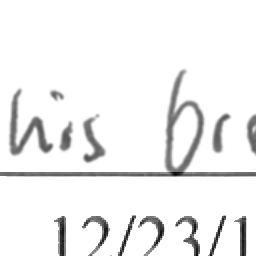 his bro
12/23/1